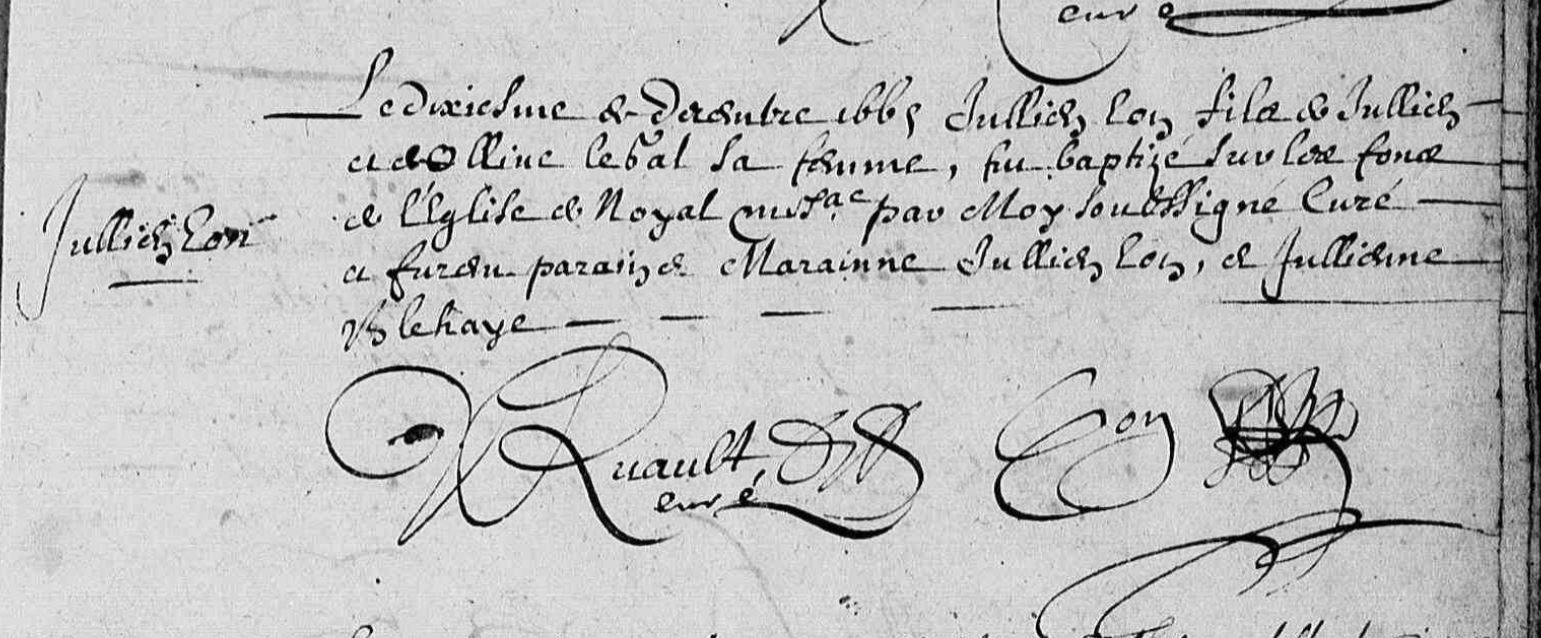 curé
Le dixiesme de decembre 1665 Jullien Eon filz de Jullien
et de Olliue le bal sa femme, fut baptizé sur les fons
de l'Eglise de Noyal par Moy soubssigné Curé
et furent parain et Marainne Jullien Eon, et Jullienne
Blehaye
Jullien Eon
Ruault,
curé
Eon